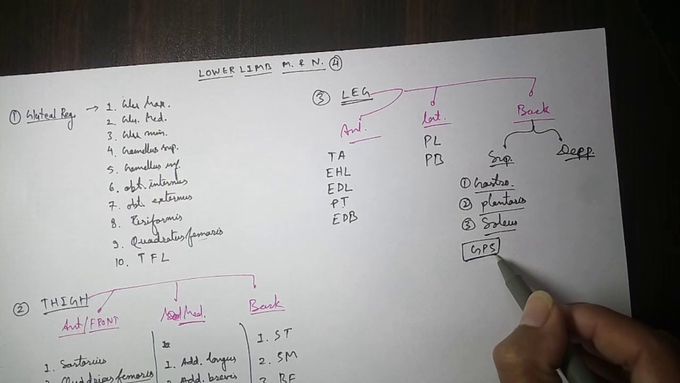 LOWER LIMB M. & N. ④
① Gluteal Reg.
1. Glu. Max.
2. Glu. Med.
3. Glu. min.
4. Gamellus sup.
5. Gamellus inf.
6. obt. internus
7. obt. externus
8. Piriformis
9. Quadratus femoris
10. TFL
② THIGH
Ant/FRONT
1. Sartorius
Med.
1. Add. longus
2. Add. breves
Back
1. ST
2. SM
3. BF
③ LEG
Ant.
TA
EHL
EDL
PT
EDB
Lat.
PL
PB
Back
Sup.
① Gastro.
② plantaris
③ Soleus
GPS
Depp.